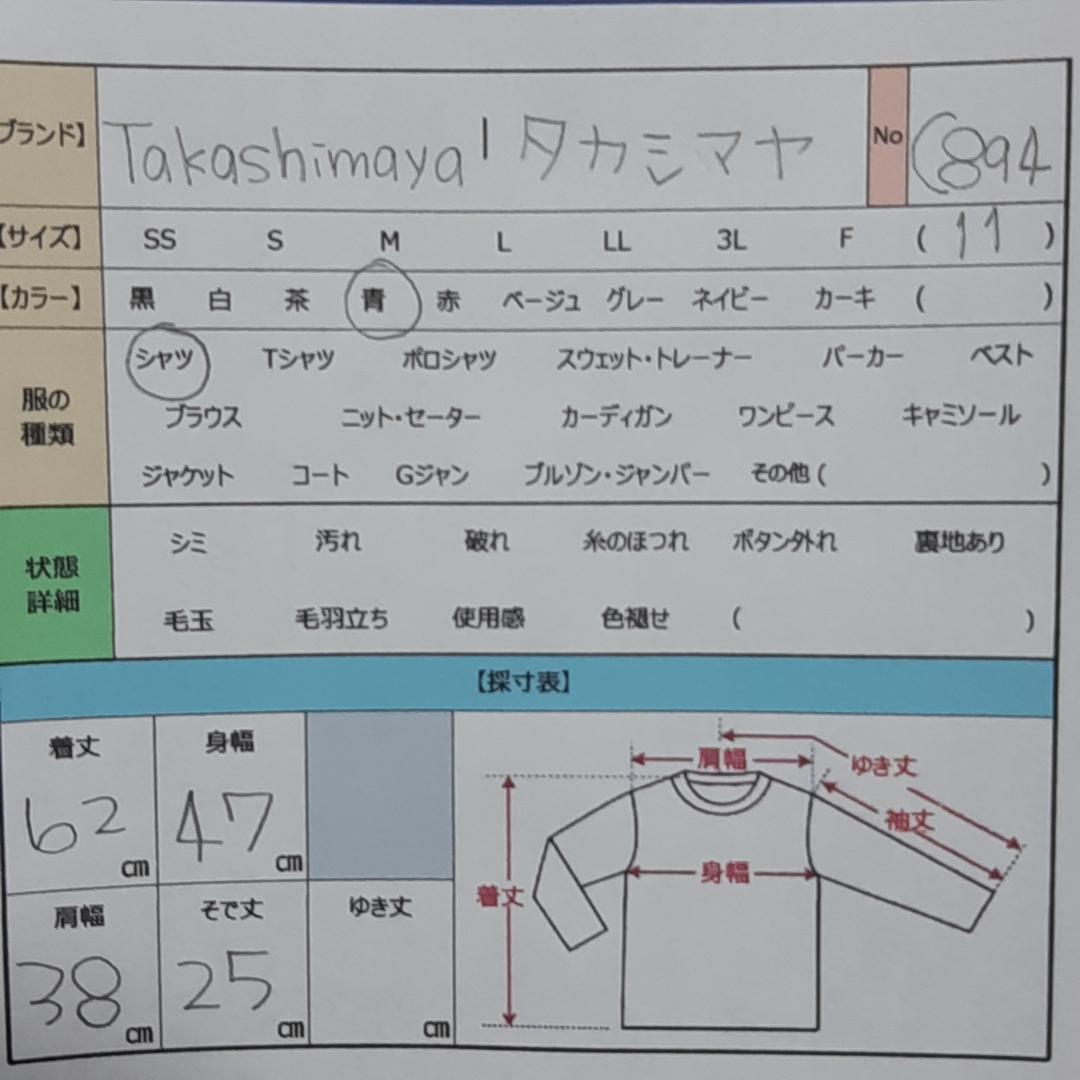 ブランド】 Takashimaya | タカシマヤ No (894
【サイズ】 SS S M L LL 3L F ( 11 )
【カラー】 黒 白 茶 青 赤 ベージュ グレー ネイビー カーキ ( )
服の
種類
シャツ Tシャツ ポロシャツ スウェット・トレーナー パーカー ベスト
ブラウス ニット・セーター カーディガン ワンピース キャミソール
ジャケット コート Gジャン ブルゾン・ジャンパー その他 ( )
状態
詳細
シミ 汚れ 破れ 糸のほつれ ボタン外れ 裏地あり
毛玉 毛羽立ち 使用感 色褪せ ( )
【採寸表】
着丈 身幅
62 cm 47 cm
肩幅 そで丈 ゆき丈
38 cm 25 cm cm
肩幅 ゆき丈
袖丈
着丈 身幅